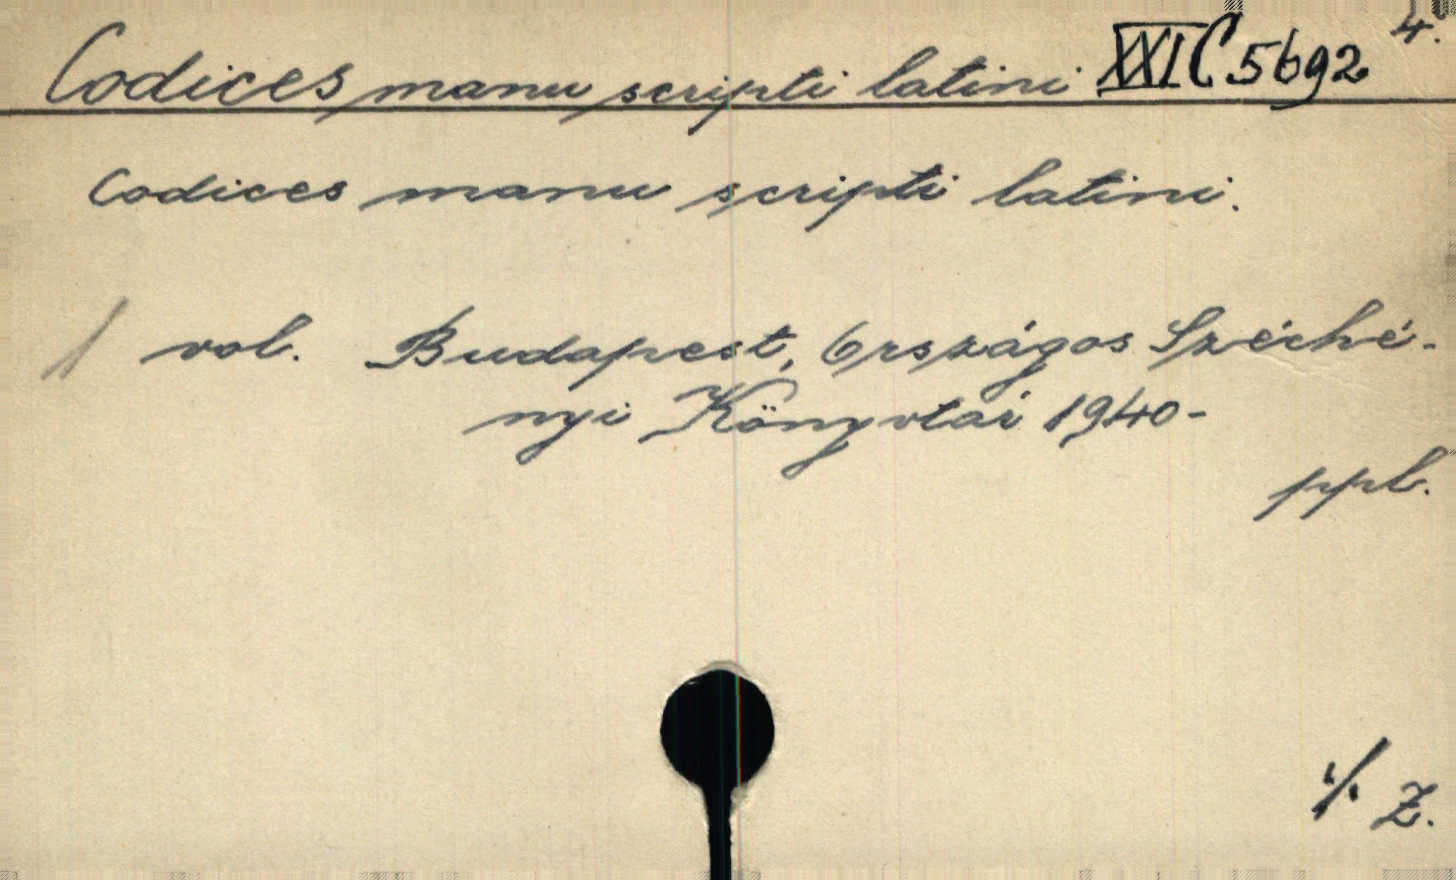 Codices manu scripti latini XXI C 5692 4.
Codices manu scripti latini.
1 vol. Budapest, Országos Széché-
nyi Könyvtár 1940-
ppl.
·/· Z.